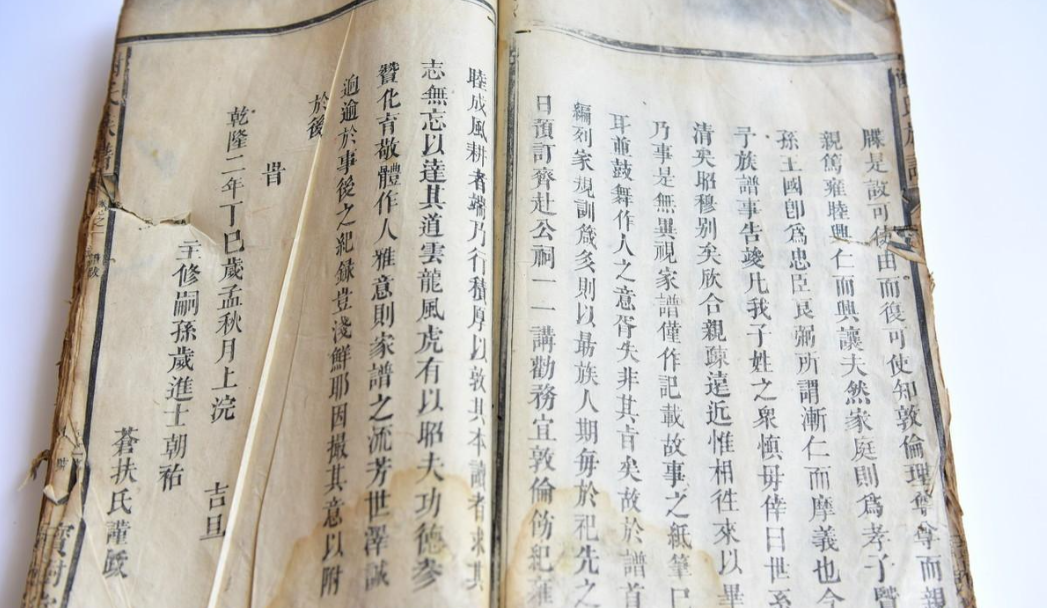 牒是設可使由而復可使知敦倫理孳孳而親
親篤雍睦興仁而興讓夫然家庭則爲孝子賢
孫王國卽爲忠臣良弼所謂漸仁而摩義也今
子族譜事告竣凡我子姓之衆慎毋倖日世系
清矣昭穆别矣欣合親疎遠近惟相徃來以畢
乃事是無異視家譜僅作記載故事之紙筆已
耳並鼓舞作人之意胥失非其旨矣故於譜首
編列家規訓箴多則以朂族人期每於祀先之
日預訂齊赴公祠一一講勸務宜敦倫飭紀雍
睦成風耕者端乃行積厚以敦其本讀者求其
志無忘以達其道雲龍風虎有以昭夫功德參
贊化育敬體作人雅意則家譜之流芳世澤誠
逈逾於事後之紀録豈淺鮮耶因撮其意以附
於後
旹
乾隆二年丁巳歲孟秋月上浣 吉旦
主修嗣孫歲進士朝祐
蒼扶氏謹跋